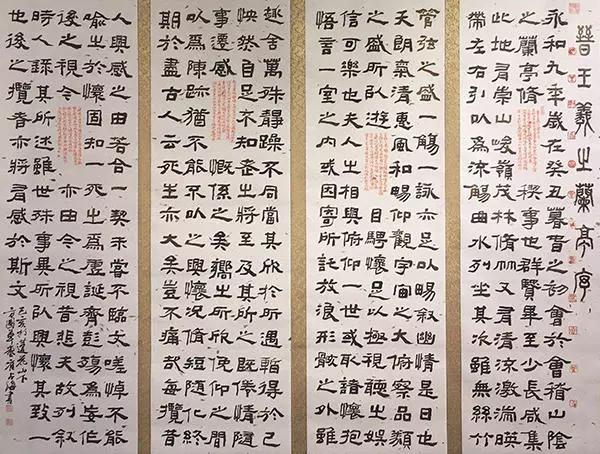 晉王羲之蘭亭序
永和九年歲在癸丑暮春之初會於會稽山陰
之蘭亭脩稧事也群賢畢至少長咸集
此地有崇山峻嶺茂林脩竹又有清流激湍暎
帶左右引以為流觴曲水列坐其次雖無絲竹
管弦之盛一觴一詠亦足以暢敘幽情是日也
天朗氣清惠風和暢仰觀宇宙之大俯察品類
之盛所以遊目騁懷足以極視聽之娛
信可樂也夫人之相與俯仰一世或取諸懷抱
悟言一室之內或因寄所託放浪形骸之外雖
趣舍萬殊靜躁不同當其欣於所遇暫得於己
怏然自足不知老之將至及其所之既惓情隨
事遷感慨係之矣嚮之所欣俛仰之間
以為陳跡猶不能不以之興懷況脩短隨化終
期於盡古人云死生亦大矣豈不痛哉每攬昔
人興感之由若合一契未嘗不臨文嗟悼不能
喻之於懷固知一死生為虛誕齊彭殤為妄作
後之視今亦由今之視昔悲夫故列敘
時人錄其所述雖世殊事異所以興懷其致一
也後之攬者亦將有感於斯文